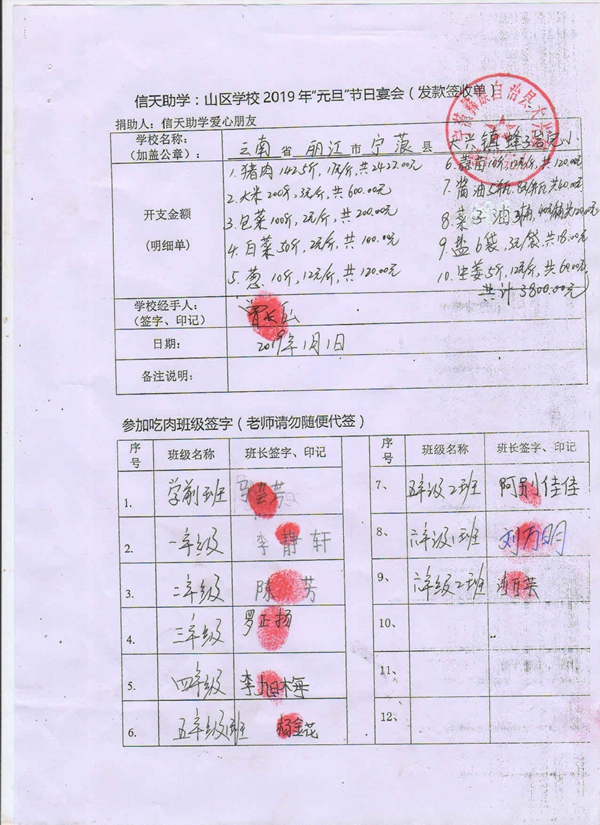 信天助学：山区学校2019年"元旦"节日宴会（发款签收单）
捐助人：信天助学爱心朋友
学校名称：
（加盖公章）：
云南省 丽江市宁蒗县 大兴镇
开支金额
（明细单）
1.猪肉142.5斤,17元/斤,共2422.00元
2.大米200斤,3元/斤,共600.00元
3.包菜100斤,2元/斤,共200.00元
4.白菜50斤,2元/斤,共100.00元
5.葱10斤,12元/斤,共120.00元
6.
7.酱油5
8.菜子油3桶
9.盐6袋,3元/袋,共18.00元
10.生姜5斤,12元/斤,共60.00元
共计3800.00元
学校经手人：
（签字、印记）
日期：
2019年1月1日
备注说明：
参加吃肉班级签字（老师请勿随便代签）
序号 班级名称 班长签字、印记
1. 学前班
2. 一年级 李静轩
3. 二年级 陈 芳
4. 三年级 罗正扬
5. 四年级 李旭梅
6. 五年级1班 杨金花
序号 班级名称 班长签字、印记
7、 五年级2班 阿别佳佳
8、 六年级1班 刘万明
9、 六年级2班
10、
11、
12、